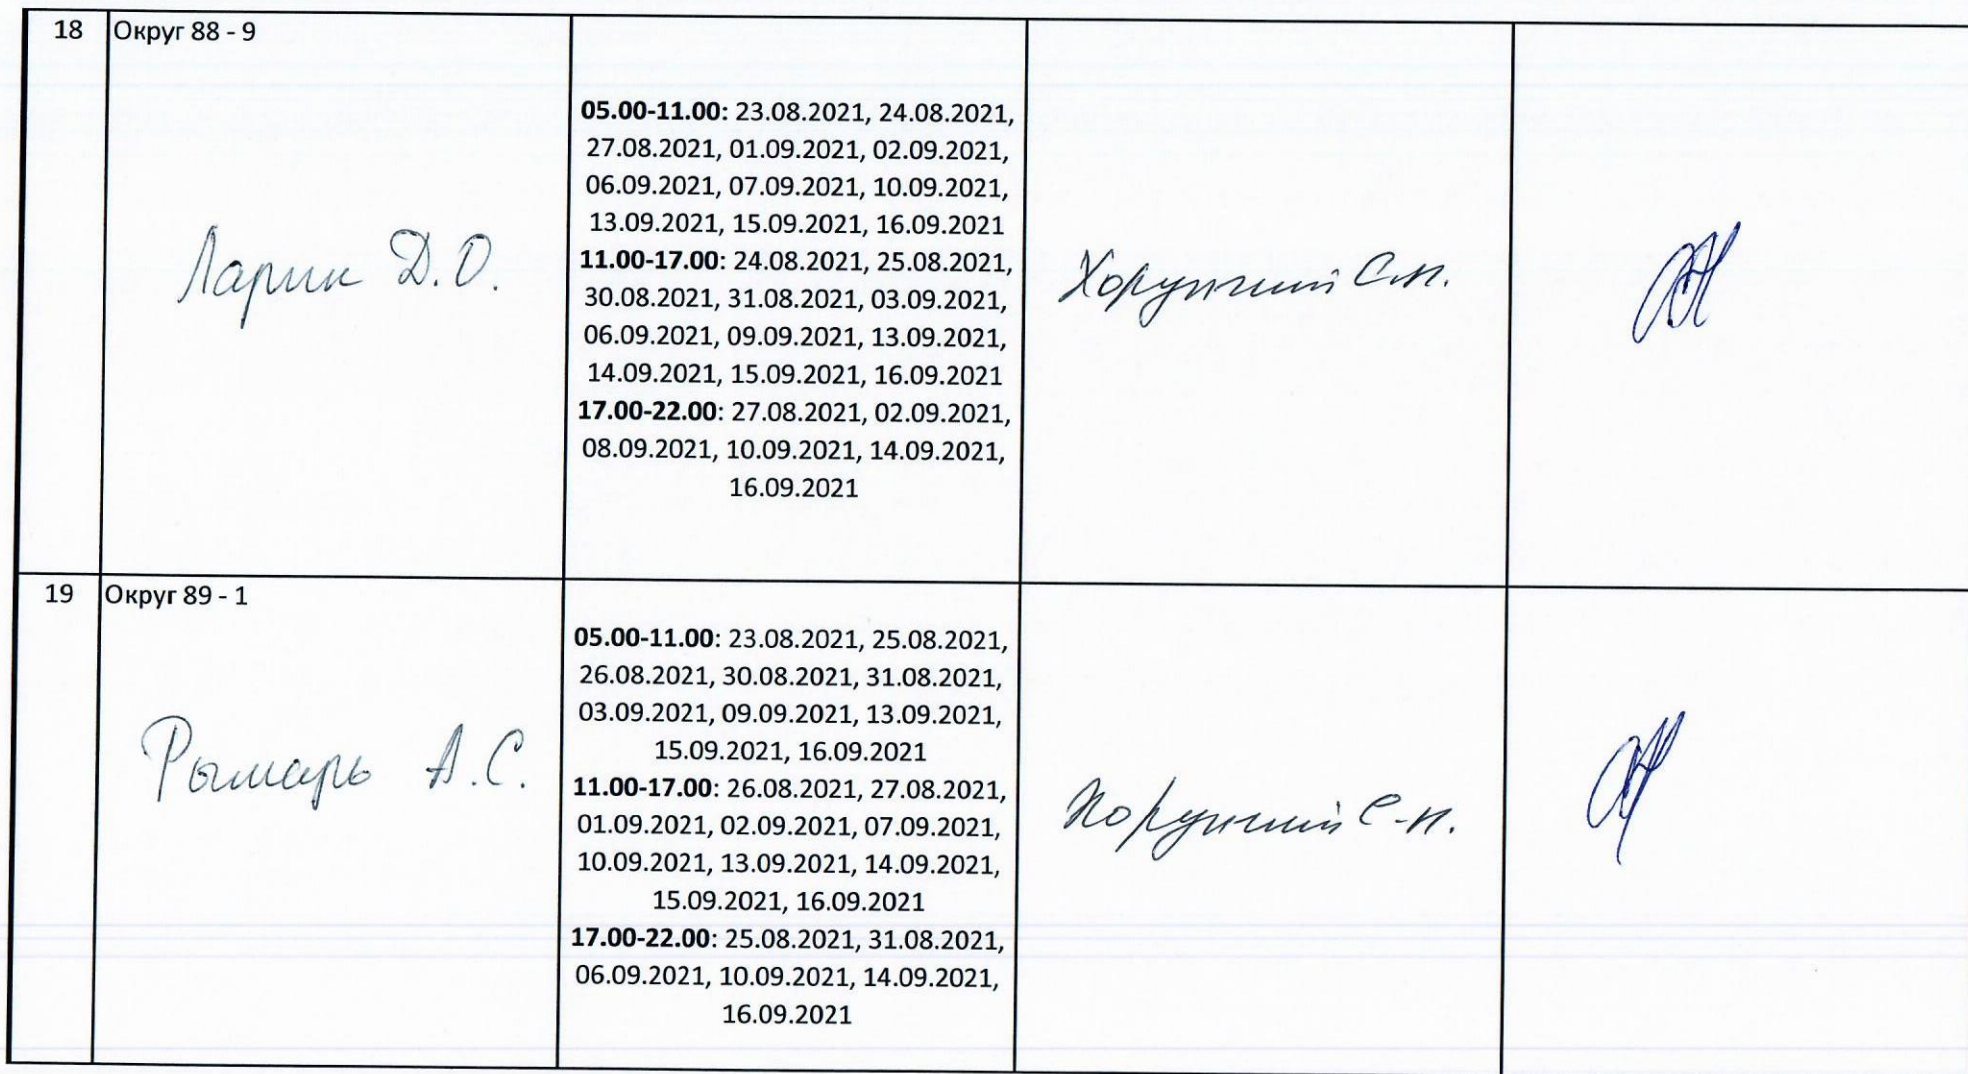 18
Округ 88 - 9
Ларин Д.О.
05.00-11.00: 23.08.2021, 24.08.2021,
27.08.2021, 01.09.2021, 02.09.2021,
06.09.2021, 07.09.2021, 10.09.2021,
13.09.2021, 15.09.2021, 16.09.2021
11.00-17.00: 24.08.2021, 25.08.2021,
30.08.2021, 31.08.2021, 03.09.2021,
06.09.2021, 09.09.2021, 13.09.2021,
14.09.2021, 15.09.2021, 16.09.2021
17.00-22.00: 27.08.2021, 02.09.2021,
08.09.2021, 10.09.2021, 14.09.2021,
16.09.2021
Хорунжий С.Н.
19
Округ 89 - 1
Рымарь А.С.
05.00-11.00: 23.08.2021, 25.08.2021,
26.08.2021, 30.08.2021, 31.08.2021,
03.09.2021, 09.09.2021, 13.09.2021,
15.09.2021, 16.09.2021
11.00-17.00: 26.08.2021, 27.08.2021,
01.09.2021, 02.09.2021, 07.09.2021,
10.09.2021, 13.09.2021, 14.09.2021,
15.09.2021, 16.09.2021
17.00-22.00: 25.08.2021, 31.08.2021,
06.09.2021, 10.09.2021, 14.09.2021,
16.09.2021
Хорунжий С.Н.